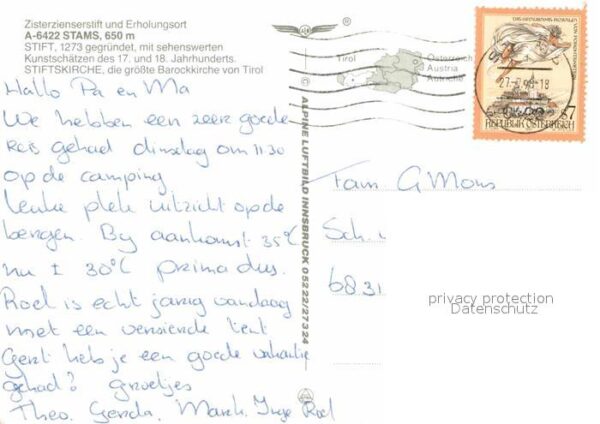 Zisterzienserstift und Erholungsort
A-6422 STAMS, 650 m
STIFT, 1273 gegründet, mit sehenswerten
Kunstschätzen des 17. und 18. Jahrhunderts.
STIFTSKIRCHE, die größte Barockkirche von Tirol
Hallo Pa en Ma
We hebben een zeer goede
reis gehad dinsdag om 11.30
op de camping
Leuke plek uitzicht op de
bergen. By aankomst 35°C
nu ± 30°C prima dus.
Roel is echt jarig vandaag
met een versierde tent
Gerrit heb je een goede vakantie
gehad? Groetjes
Theo, Gerda, Mark, Inge Roel
ALPINE LUFTBILD INNSBRUCK 05222/27324
Tirol
Österreich
Austria
Autriche
S7
REPUBLIK ÖSTERREICH
Fam G Mons
Sch
6831
privacy protection
Datenschutz